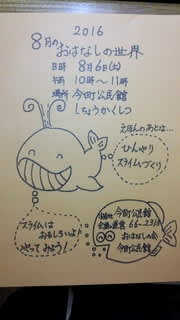 2016
8月のおはなしの世界
日時 8月6日(土)
午前 10時〜11時
場所 今町公民館
しちょうかくしつ
えほんのあとは…
ひんやり
スライムづくり
スライムは
おもしろいよ♪
やってみよう!
今町公民館
66-2310
おはなしの会
今町公民館